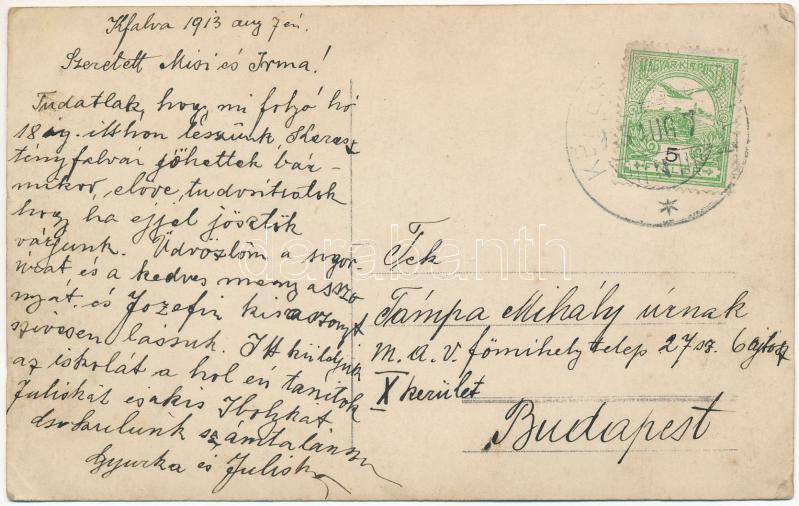 Kfalva 1913 aug 7én.
Szeretett Misi és Irma!
Tudatlak, hogy mi folyó hó
18ig itthon leszünk, Keresz
tényfalvár jöhettek bár-
mikor, előve tudositsatok
hogy ha éjjel jösztök
várjunk. Üdvözlöm a sogor
urat és a kedves menyasszo
nyát és Jozefin kisasszonyt
szivesen lássuk. Itt küldjük
az iskolát a hol én tanitok
Juliskát és a kis Ibolykát
csokolunk számtalanszor
Gyurka és Juliska
MAGYAR KIR. POSTA
5
FILLÉR
AUG 7
Tek
Támpa Mihály úrnak
m. á. v. főmihely telep 27 sz. 6 ajtó
X kerület
Budapest
darabanth